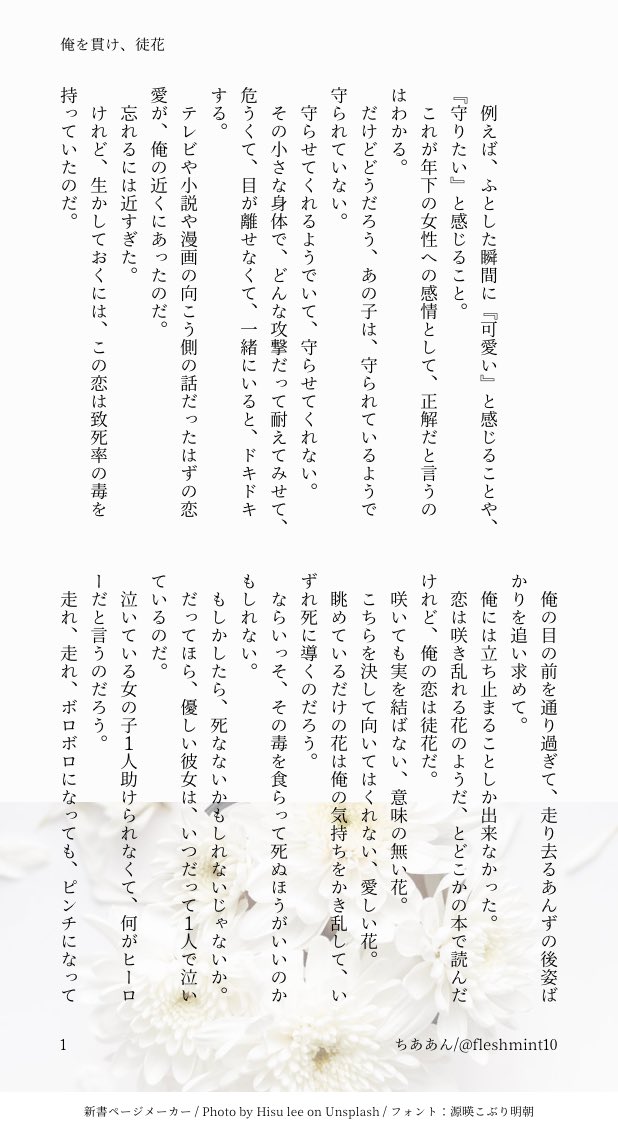 俺を貫け、徒花
例えば、ふとした瞬間に『可愛い』と感じることや、
『守りたい』と感じること。
これが年下の女性への感情として、正解だと言うの
はわかる。
だけどどうだろう、あの子は、守られているようで
守られていない。
守らせてくれるようでいて、守らせてくれない。
その小さな身体で、どんな攻撃だって耐えてみせて、
危うくて、目が離せなくて、一緒にいると、ドキドキ
する。
テレビや小説や漫画の向こう側の話だったはずの恋
愛が、俺の近くにあったのだ。
忘れるには近すぎた。
けれど、生かしておくには、この恋は致死率の毒を
持っていたのだ。
俺の目の前を通り過ぎて、走り去るあんずの後姿ば
かりを追い求めて。
俺には立ち止まることしか出来なかった。
恋は咲き乱れる花のようだ、とどこかの本で読んだ
けれど、俺の恋は徒花だ。
咲いても実を結ばない、意味の無い花。
こちらを決して向いてはくれない、愛しい花。
眺めているだけの花は俺の気持ちをかき乱して、い
ずれ死に導くのだろう。
ならいっそ、その毒を食らって死ぬほうがいいのか
もしれない。
もしかしたら、死なないかもしれないじゃないか。
だってほら、優しい彼女は、いつだって1人で泣い
ているのだ。
泣いている女の子1人助けられなくて、何がヒーロ
ーだと言うのだろう。
走れ、走れ、ボロボロになっても、ピンチになって
1
ちああん/@fleshmint10
新書ページメーカー / Photo by Hisu lee on Unsplash / フォント：源暎こぶり明朝